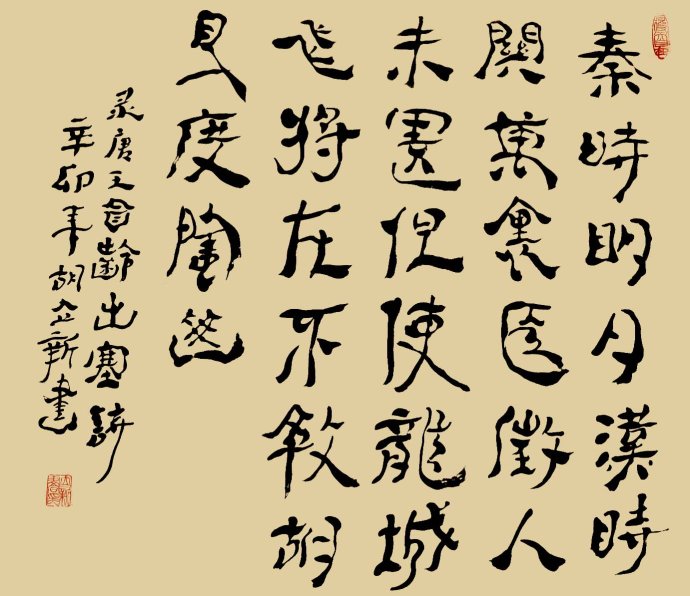 秦時明月漢時
關萬裏長徵人
未還但使龍城
飞將在不教胡
馬度陰山
录唐王昌齡出塞詩
辛卯年胡立新書